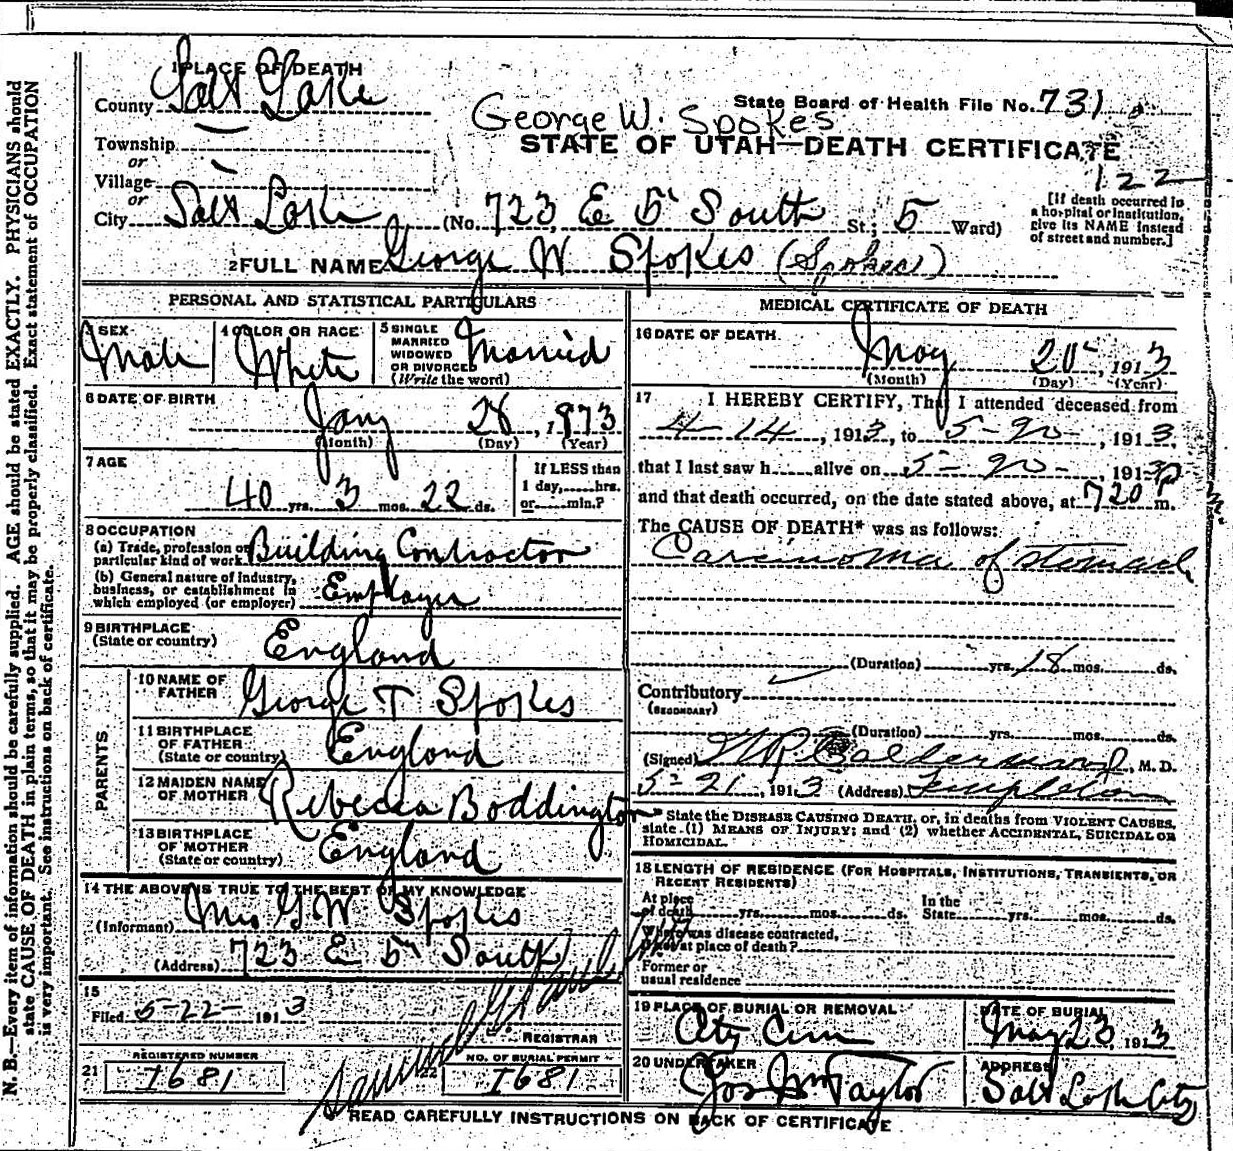 N. B.—Every item of information should be carefully supplied. AGE should be stated EXACTLY. PHYSICIANS should
state CAUSE OF DEATH in plain terms, so that it may be properly classified. Exact statement of OCCUPATION
is very important. See instructions on back of certificate.
1 PLACE OF DEATH
County Salt Lake
State Board of Health File No. 731
George W. Spokes
Township
or
STATE OF UTAH—DEATH CERTIFICATE
Village
or
122
City Salt Lake (No. 723, E 5" South St.; 5 Ward)
[If death occurred in
a hospital or institution,
give its NAME instead
of street and number.]
2 FULL NAME George W Spokes (Spokes)
PERSONAL AND STATISTICAL PARTICULARS
3 SEX
Male
4 COLOR OR RACE
White
5 SINGLE
MARRIED
WIDOWED
OR DIVORCED
(Write the word)
Married
6 DATE OF BIRTH
Jany 28, 1873
(Month) (Day) (Year)
7 AGE
40 yrs. 3 mos. 22 ds.
If LESS than
1 day, hrs.
or min.?
8 OCCUPATION
(a) Trade, profession or
particular kind of work Building Contractor
(b) General nature of industry,
business, or establishment in
which employed (or employer) Employer
9 BIRTHPLACE
(State or country)
England
PARENTS
10 NAME OF
FATHER
George T Spokes
11 BIRTHPLACE
OF FATHER
(State or country)
England
12 MAIDEN NAME
OF MOTHER
Rebecca Boddington
13 BIRTHPLACE
OF MOTHER
(State or country)
England
14 THE ABOVE IS TRUE TO THE BEST OF MY KNOWLEDGE
(Informant) Mrs G. W. Spokes
(Address) 723 E 5" South
15
Filed 5-22- 1913
REGISTRAR
REGISTERED NUMBER
21 I681
NO. OF BURIAL PERMIT
22 I681
MEDICAL CERTIFICATE OF DEATH
16 DATE OF DEATH
May 20", 1913
(Month) (Day) (Year)
17 I HEREBY CERTIFY, That I attended deceased from
4-14, 1913, to 5-20-, 1913.
that I last saw h alive on 5-20-, 1913
and that death occurred, on the date stated above, at 720 P m.
The CAUSE OF DEATH* was as follows:
Carcinoma of stomach
(Duration) yrs. 18 mos. ds.
Contributory
(SECONDARY)
(Duration) yrs. mos. ds.
(Signed) W R Calderwood, M. D.
5-21, 1913 (Address) Templeton
State the DISEASE CAUSING DEATH, or, in deaths from VIOLENT CAUSES,
state (1) MEANS OF INJURY; and (2) whether ACCIDENTAL, SUICIDAL OR
HOMICIDAL.
18 LENGTH OF RESIDENCE (FOR HOSPITALS, INSTITUTIONS, TRANSIENTS, OR
RECENT RESIDENTS)
At place
of death yrs. mos. ds.
In the
State yrs. mos. ds.
Where was disease contracted,
if not at place of death?
Former or
usual residence
19 PLACE OF BURIAL OR REMOVAL
City Cem
DATE OF BURIAL
May 23, 1913
20 UNDERTAKER
Jos Wm Taylor
ADDRESS
Salt Lake City
READ CAREFULLY INSTRUCTIONS ON BACK OF CERTIFICATE